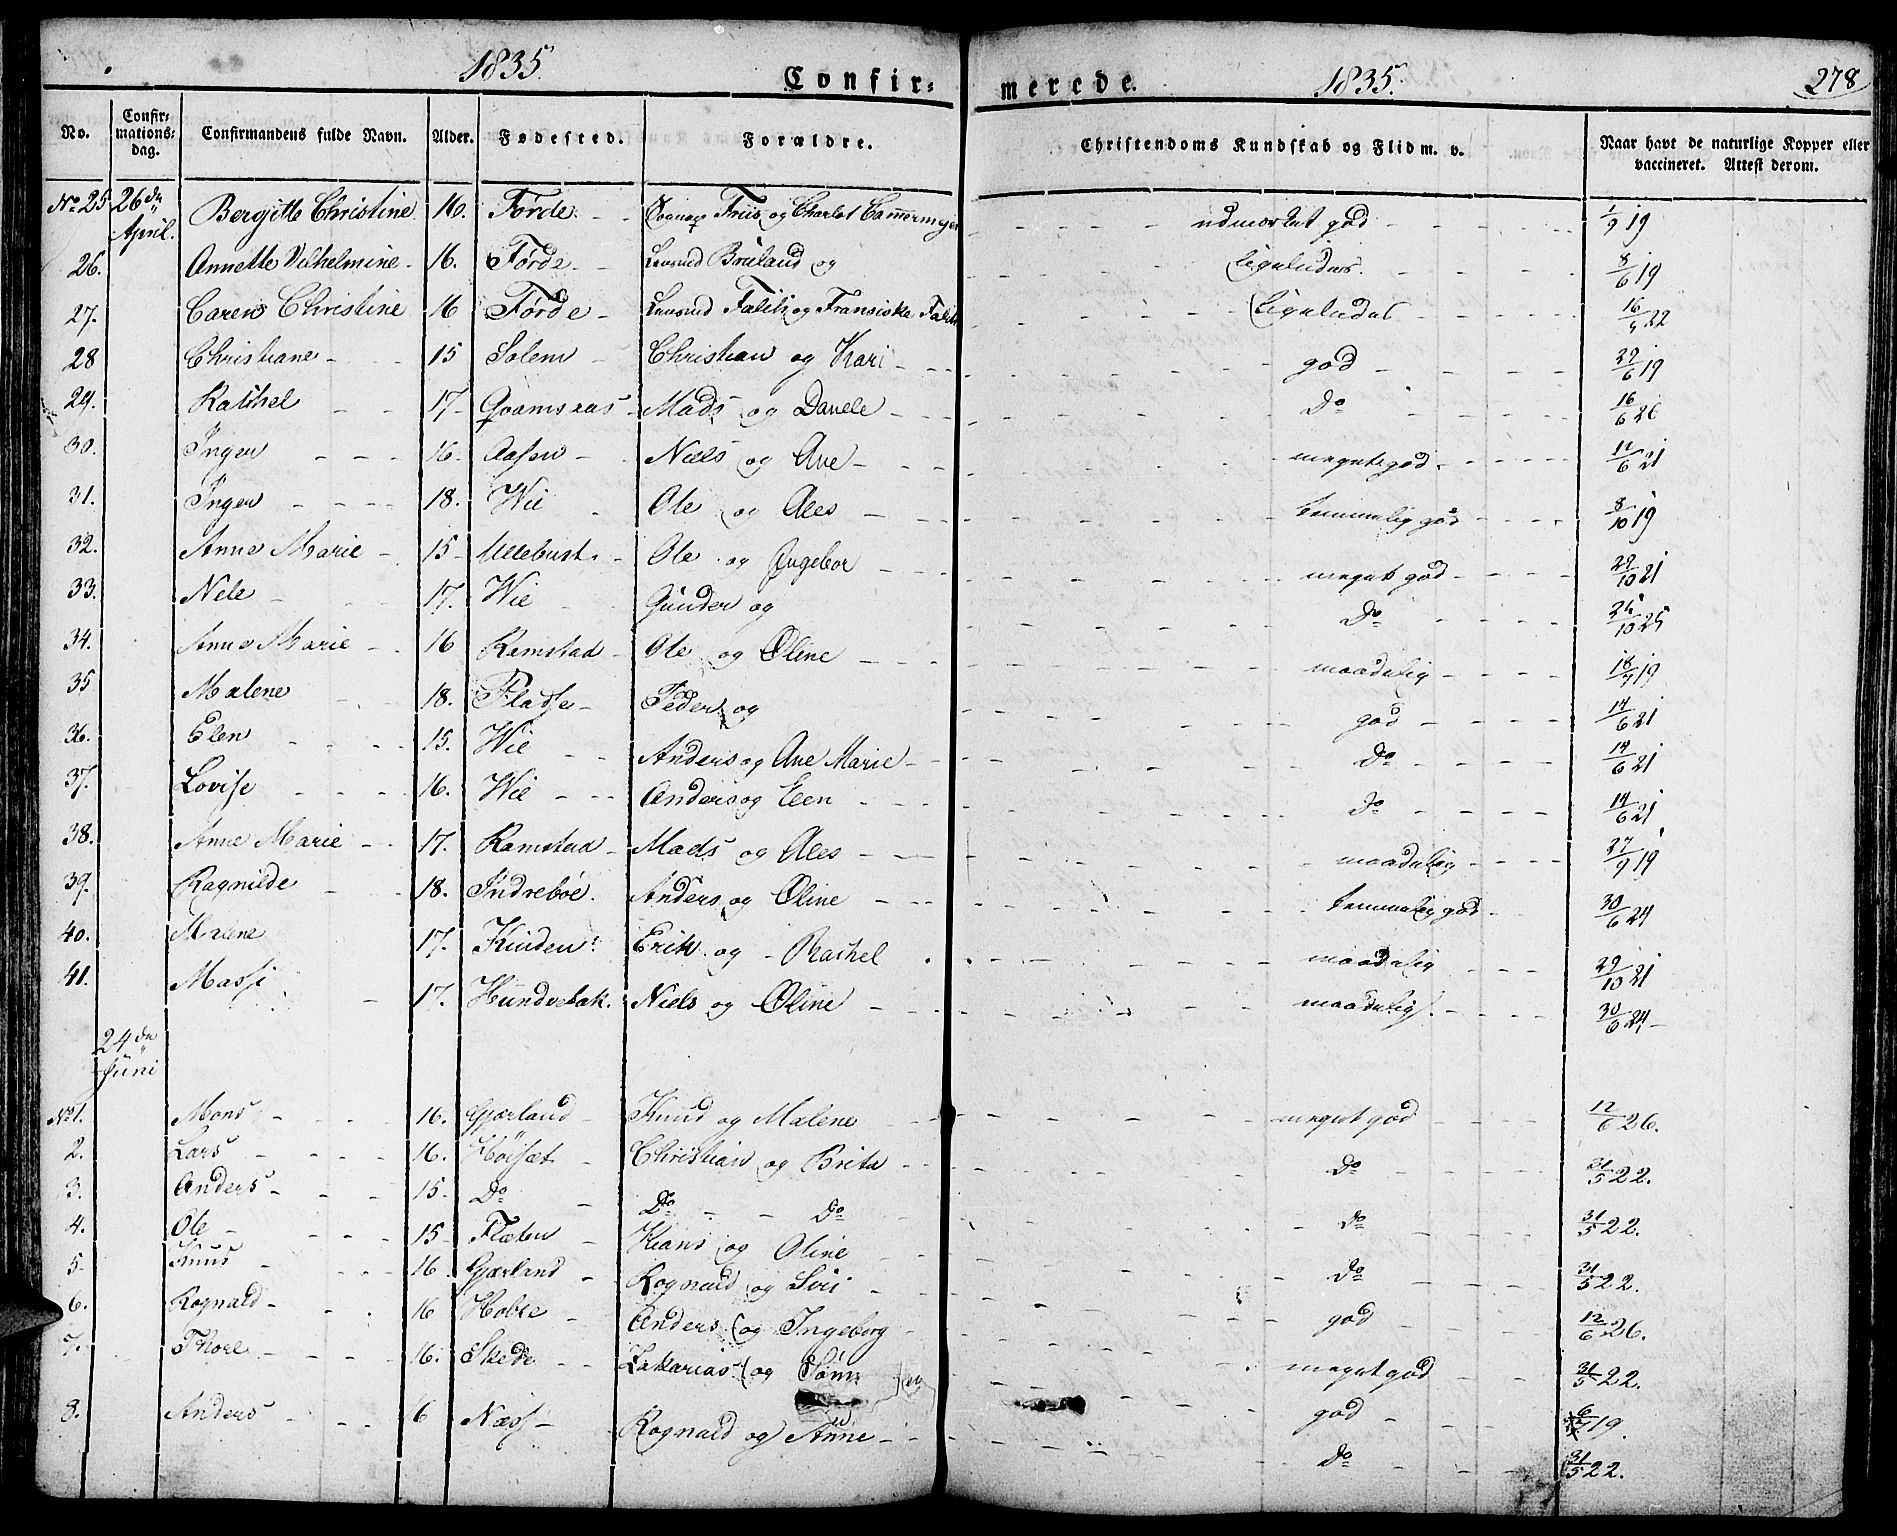 1835. Confirmerede. 1835. 278
No. Confirmationsdag. Confirmandens fulde Navn. Alder. Fødested. Forældre. Christendoms Kundskab og Flid m. v. Naar havt de naturlige Kopper eller vaccineret. Attest derom.
No 25 26de April. Bergitte Christine 16. Førde. Friis og Charlot Cammermeyer udmærket god 1/9 19
26. Annette Vilhelmine 16. Førde Bruland og Ligeledes. 8/6 19
27. Caren Christine 16 Førde Falck og Fransiske Falck Ligeledes 22
28 Christiane 15 Solem Christian og Kari god 19
29. Rachel 17 Qvamsaas Mads og Danele Do 16/6
30. Inger 16. Aasen Niels og Ane meget god 21
31. Inger 18. Wie Ole og Ales temmelig god 8/10 19
32. Anne Marie 15 Ullebust Ole og Ingebor meget god 29/10 21
33. Nele 17. Wie Gunder og Do 25
34. Anne Marie 16 Ramstad Ole og Oline maadelig 19
35 Malene 18. Fladse Peder og god 14/6 21
36. Elen 15. Wie Anders og Ane Marie Do 14/6 21
37. Lovise 16. Wie Anders og Elen Do 14/6 21
38. Anne Marie 17. Ramstad Mads og Ales maadelig 27/9 19
39. Ragnilde 18. Indrebøe. Anders og Oline temmelig god 30/6 24
40. Malene 17. Kinden Erik og Rachel maadelig 29/10 21
41. Massi 17. Hundvebak. Niels og Oline maadelig 30/6 24
24de Juni
No 1. Mons 16. Gjærland Knud og Malene meget god 12/6 26.
2. Lars 16. Høisæt Christian og Brita Do 31/5 22.
3. Anders 15. Do Do Do Do 31/5 22.
4. Ole 15 Flaten Hans og Oline Do 31/5 22.
5. Knud 16 Gjærland Rognald og Siri god 12/6 26.
6. Rognald 16 Holse Anders og Ingeborg meget god 31/5 22.
7. Thore 16. Skede Zakarias og god 19.
8. Anders 6 Næss Rognald og Anne Do 31/5 22.